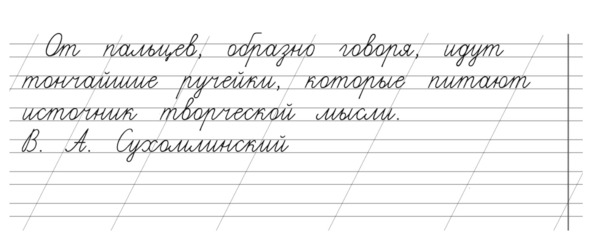 От пальцев, образно говоря, идут
тончайшие ручейки, которые питают
источник творческой мысли.
В. А. Сухомлинский